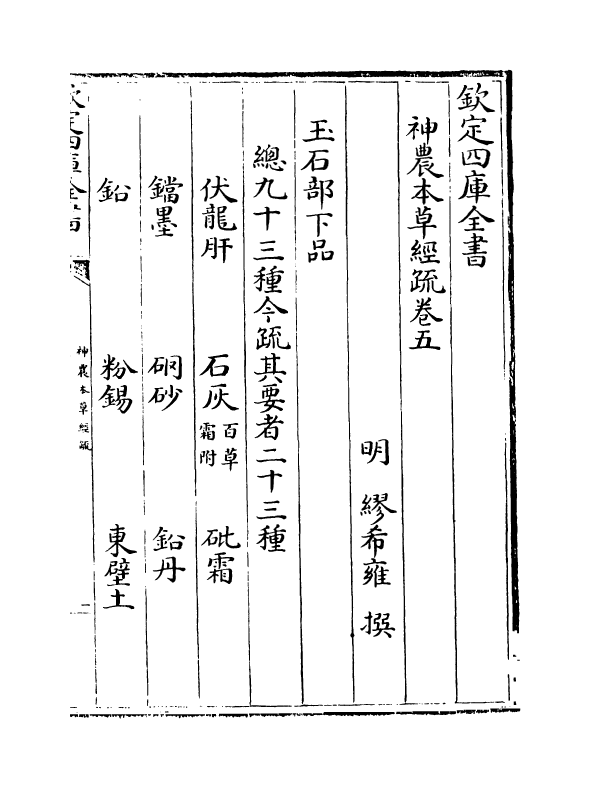 欽定四庫全書
神農本草經疏卷五
明 繆希雍 撰
玉石部下品
總九十三種今疏其要者二十三種
伏龍肝 石灰 百草霜附 砒霜
鐺墨 硇砂 鉛丹
鉛 粉錫 東壁土
欽定四庫全書
神農本草經疏
一